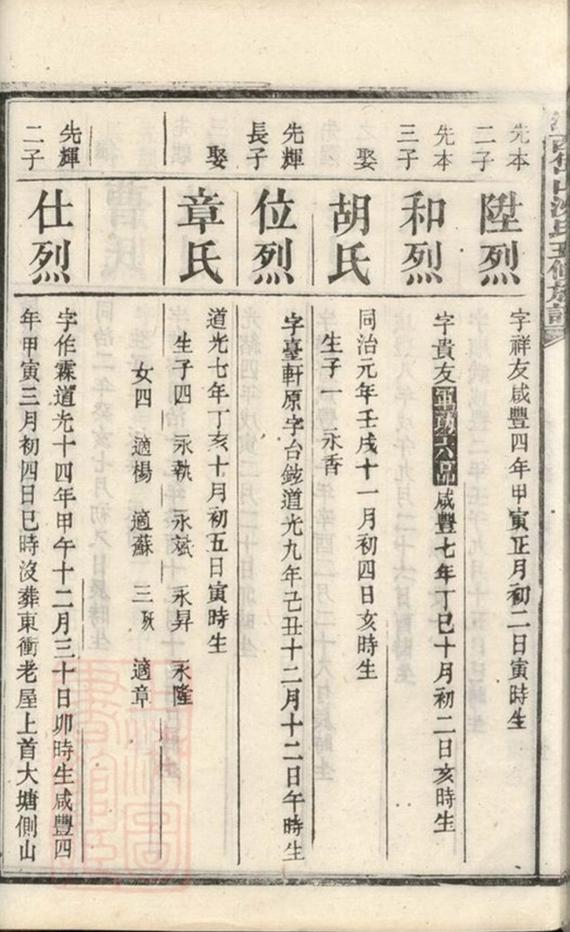 先本
二子
陞烈
字祥友咸豐四年甲寅正月初二日寅時生
先本
三子
和烈
字貴友軍功六品咸豐七年丁巳十月初二日亥時生
娶
胡氏
同治元年壬戌十一月初四日亥時生
生子一 永香
先輝
長子
位烈
字臺軒原字台鉉道光九年己丑十二月十二日午時生
娶
章氏
道光七年丁亥十月初五日寅時生
生子四 永執 永斌 永昇 永隆
女四 適楊 適蘇 三殀 適章
先輝
二子
仕烈
字作霖道光十四年甲午十二月三十日卯時生咸豐四
年甲寅三月初四日巳時沒葬東衝老屋上首大塘側山